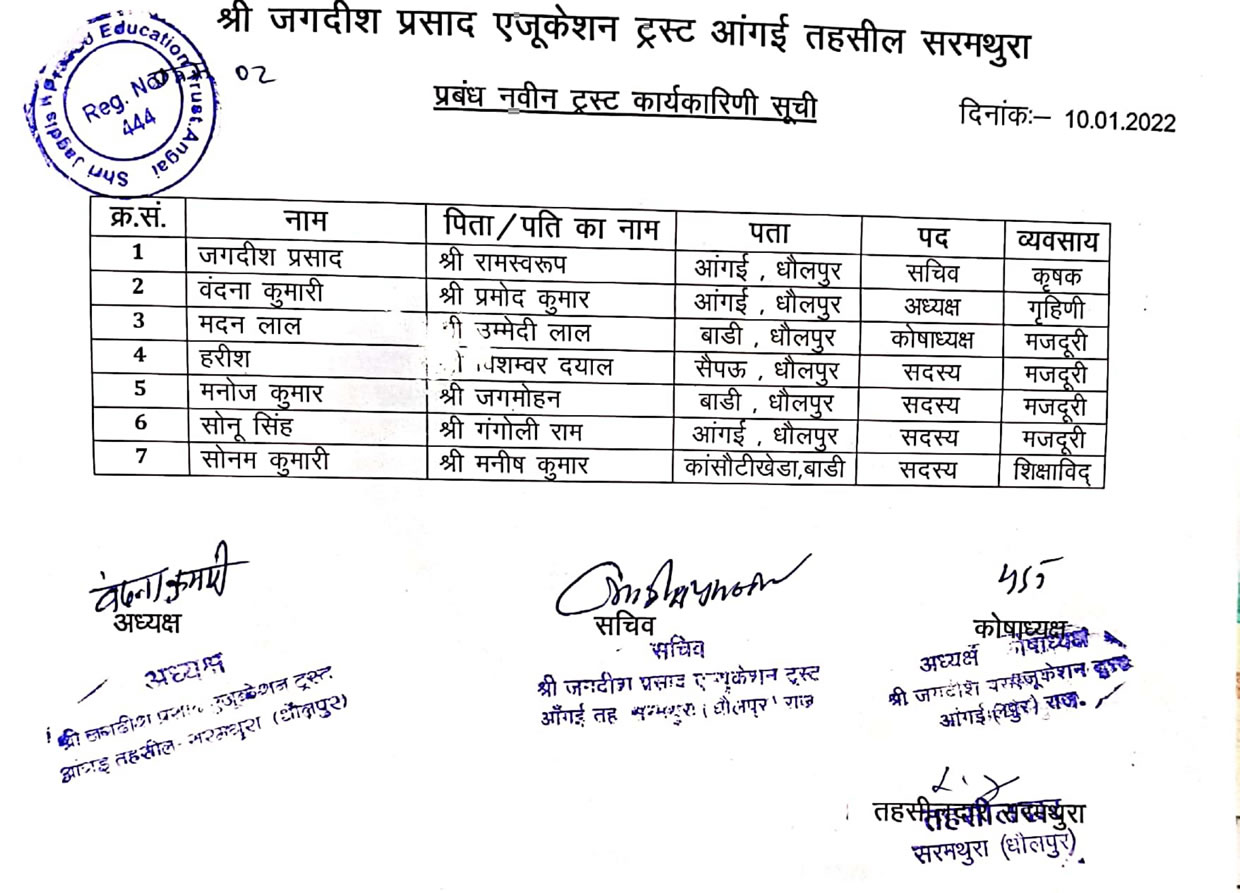 श्री जगदीश प्रसाद एजूकेशन ट्रस्ट आंगई तहसील सरमथुरा
Shri Jagdish Education Trust, Angai
Reg. No.
444
02
प्रबंध नवीन ट्रस्ट कार्यकारिणी सूची
दिनांकः– 10.01.2022
क्र.सं. नाम पिता/पति का नाम पता पद व्यवसाय
1 जगदीश प्रसाद श्री रामस्वरूप आंगई , धौलपुर सचिव कृषक
2 वंदना कुमारी श्री प्रमोद कुमार आंगई , धौलपुर अध्यक्ष गृहिणी
3 मदन लाल उम्मेदी लाल बाडी , धौलपुर कोषाध्यक्ष मजदूरी
4 हरीश दयाल सैपऊ , धौलपुर सदस्य मजदूरी
5 मनोज कुमार श्री जगमोहन बाडी , धौलपुर सदस्य मजदूरी
6 सोनू सिंह श्री गंगोली राम आंगई , धौलपुर सदस्य मजदूरी
7 सोनम कुमारी श्री मनीष कुमार कांसौटीखेडा,बाडी सदस्य शिक्षाविद्
वंदना कुमारी
अध्यक्ष सचिव कोषाध्यक्ष
अध्यक्ष
श्री जगदीश प्रसाद एजूकेशन ट्रस्ट
आंगई तहसील- सरमथुरा (धौलपुर)
सचिव
श्री जगदीश प्रसाद एज्यूकेशन ट्रस्ट
आँगई तह सरमथुरा (धौलपुर) राज
अध्यक्ष कोषाध्यक्ष
श्री जगदीश एजूकेशन ट्रस्ट
आंगई राज.
तहसीलदार सरमथुरा
सरमथुरा (धौलपुर)